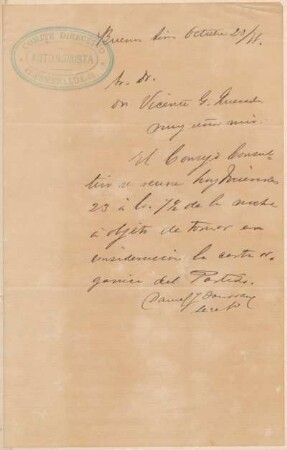 COMITÉ DIRECTIVO
AUTONOMISTA
Buenos Aires Octubre 23/78.
Sr. Dr.
Dn Vicente G. Quesada
muy señor mio:
El Consejo Consul-
tivo se reune hoy Miercoles
23 á las 7½ de la noche
á objeto de tomar en
consideracion la carta or-
ganica del Partido.
Secrio